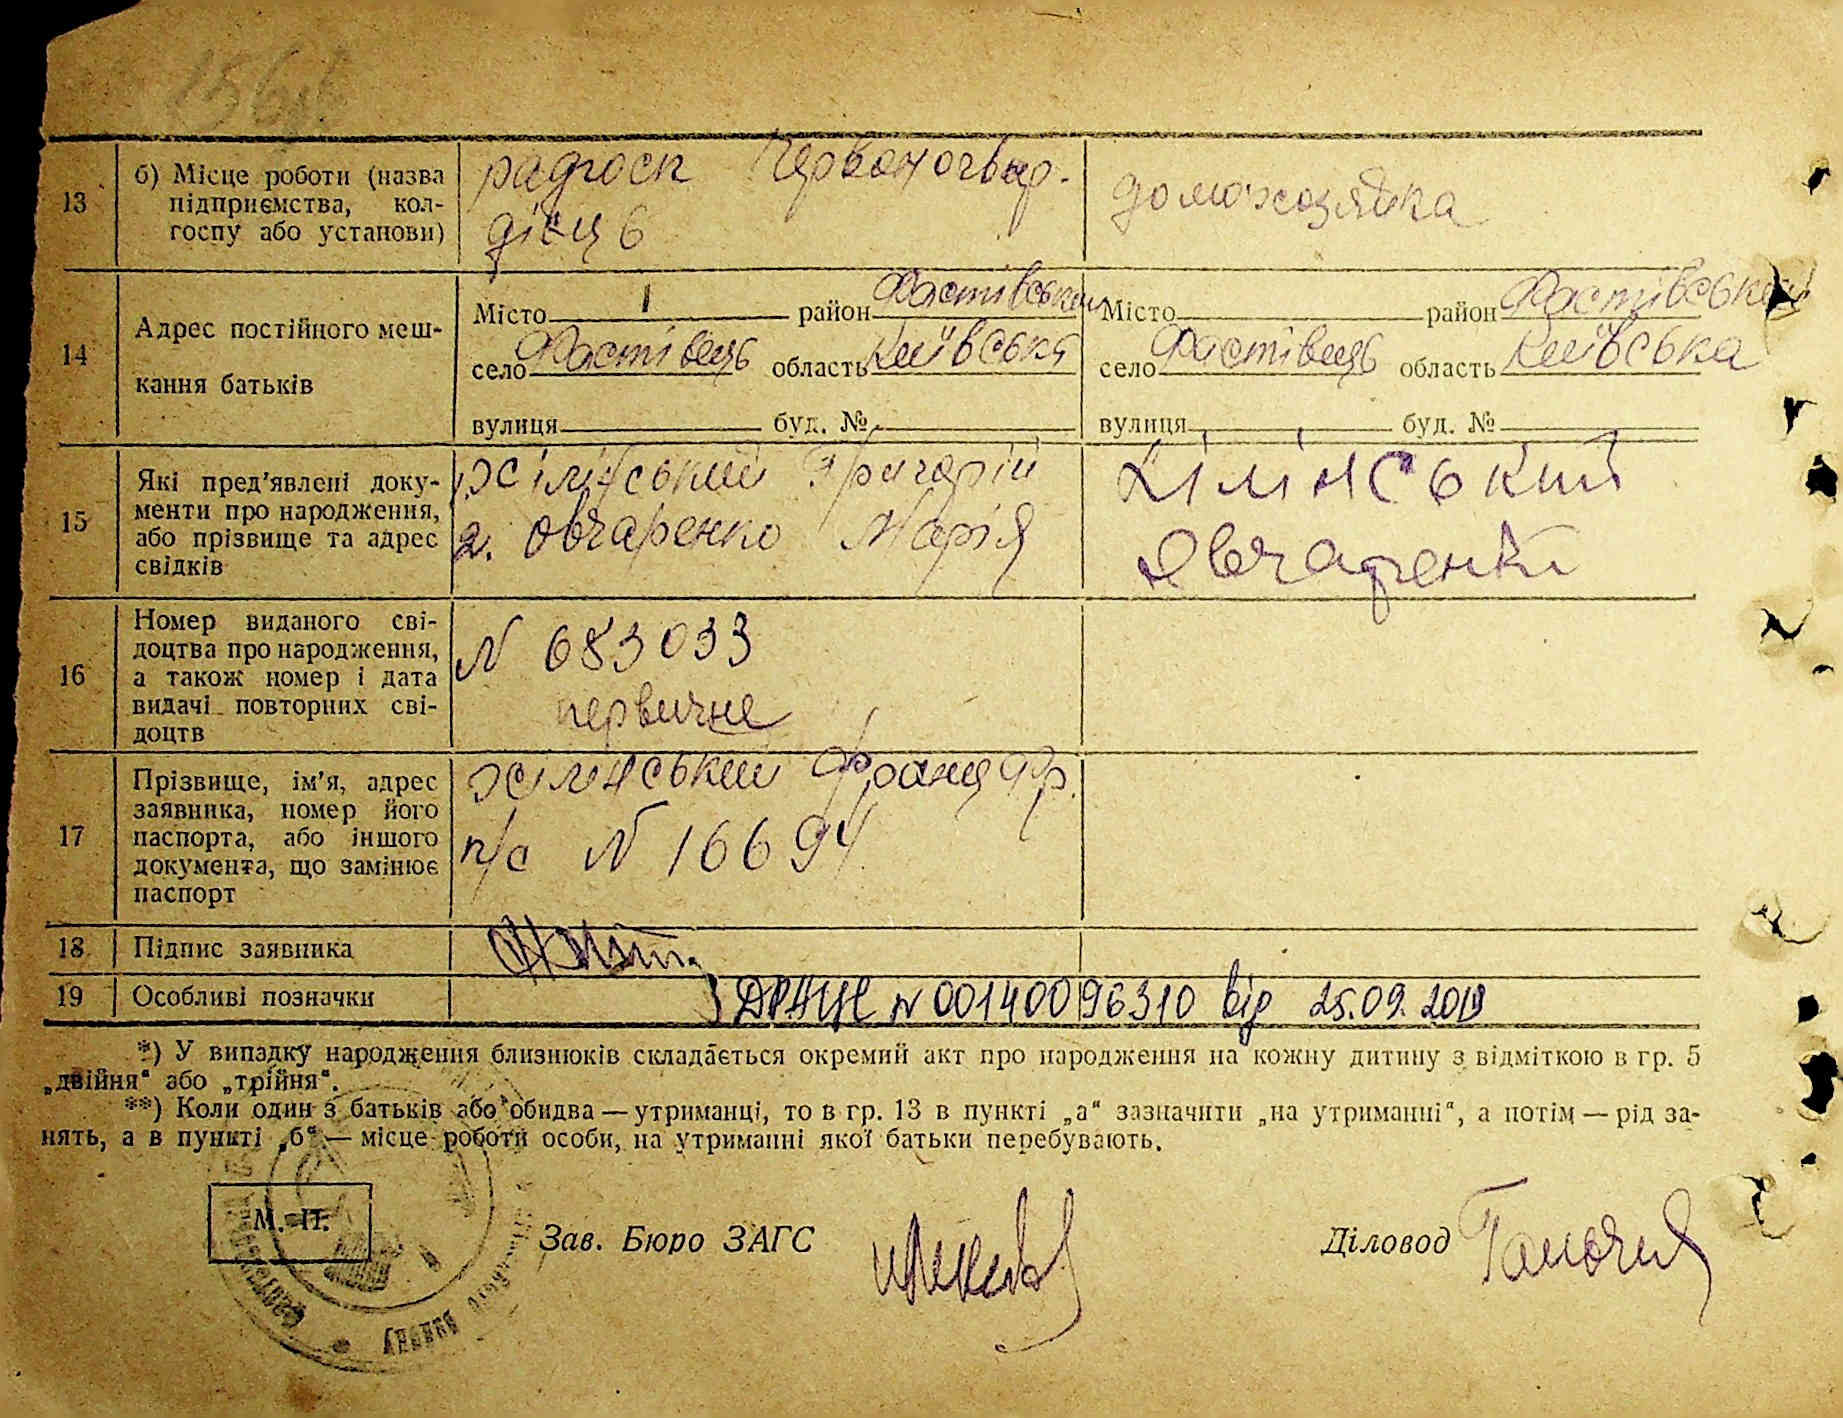 13
б) Місце роботи (назва підприємства, колгоспу або установи)
радгосп Червоногвар.
дієць
домохозяйка
14
Адрес постійного мешкання батьків
Місто район Фастівський
село Фастівець область Київська
вулиця буд. №
Місто район Фастівський
село Фастівець область Київська
вулиця буд. №
15
Які пред'явлені документи про народження, або прізвище та адрес свідків
Жілінський Григорій
2. Овчаренко Марія
Жілінський
Овчаренко
16
Номер виданого свідоцтва про народження, а також номер і дата видачі повторних свідоцтв
N 683033
первичне
17
Прізвище, ім'я, адрес заявника, номер його паспорта, або іншого документа, що замінює паспорт
Жілінський Франц Фр.
п/с N 16694
18
Підпис заявника
19
Особливі позначки
ДРАЦС N 00140096310 від 25.09.2019
*) У випадку народження близнюків складається окремий акт про народження на кожну дитину з відміткою в гр. 5
„двійня“ або „трійня“.
**) Коли один з батьків або обидва — утриманці, то в гр. 13 в пункті „а“ зазначити „на утриманні“, а потім — рід за-
нять, а в пункті „б“ — місце роботи особи, на утриманні якої батьки перебувають.
М. П.
Зав. Бюро ЗАГС
Діловод